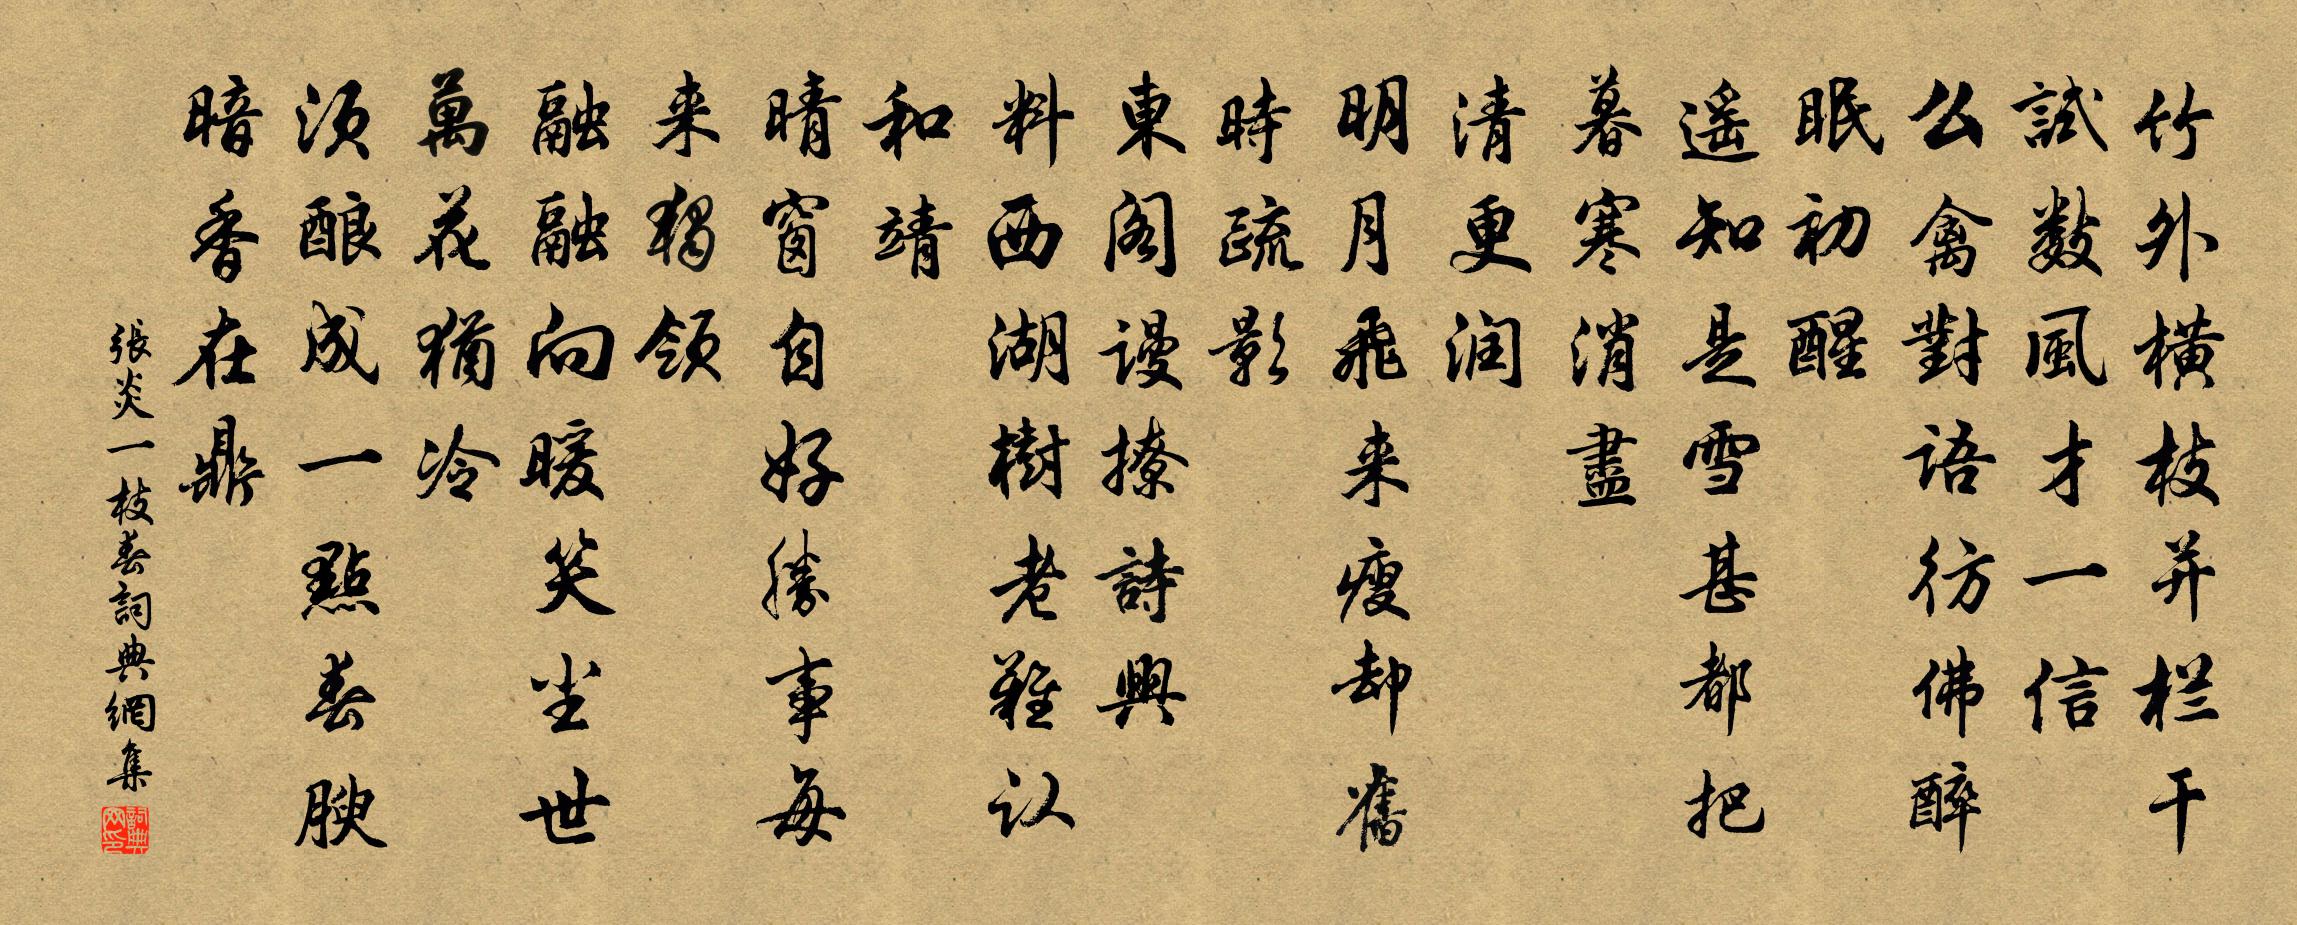 竹外橫枝并栏干
試數風才一信
么禽對語彷佛醉
眠初醒
遥知是雪甚都把
暮寒消盡
清更润
明月飛来瘦却舊
時疏影
東阁谩撩詩興
料西湖樹老難认
和靖
晴窗自好勝事每
来獨领
融融向暖笑尘世
萬花猶冷
须酿成一點春腴
暗香在鼎
張炎一枝春詞典網集
詞典网印